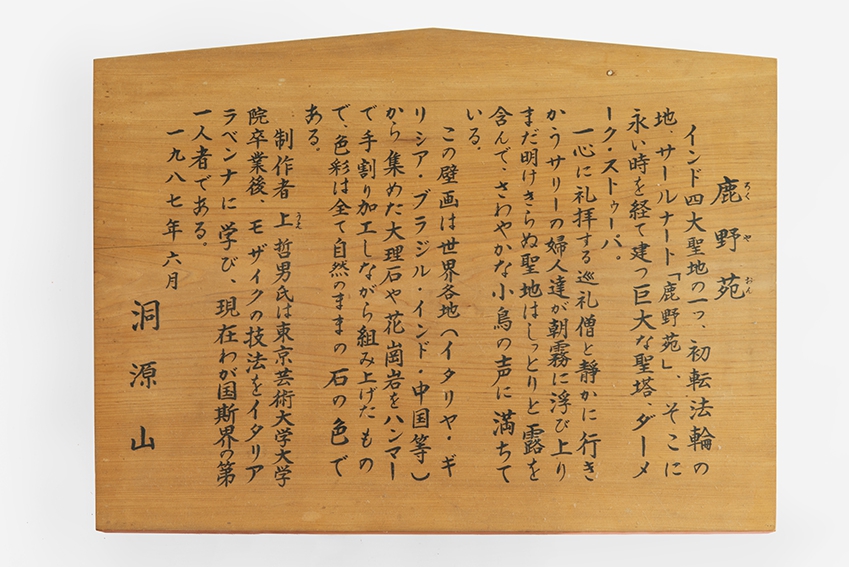 鹿野苑
ろくやおん
インド四大聖地の一つ、初転法輪の
地、サールナート「鹿野苑」、そこに
永い時を経て建つ巨大な聖塔、ダーメ
ーク・ストゥーパ。
一心に礼拝する巡礼僧と静かに行き
かうサリーの婦人達が朝霧に浮び上り
まだ明けきらぬ聖地はしっとりと露を
含んで、さわやかな小鳥の声に満ちて
いる。
この壁画は世界各地(イタリヤ・ギ
リシア・ブラジル・インド・中国等)
から集めた大理石や花崗岩をハンマー
で手割り加工しながら組み上げたもの
で、色彩は全て自然のままの石の色で
ある。
制作者上哲男氏は東京芸術大学大学
うえ
院卒業後、モザイクの技法をイタリア
ラベンナに学び、現在わが国斯界の第
一人者である。
一九八七年六月
洞源山